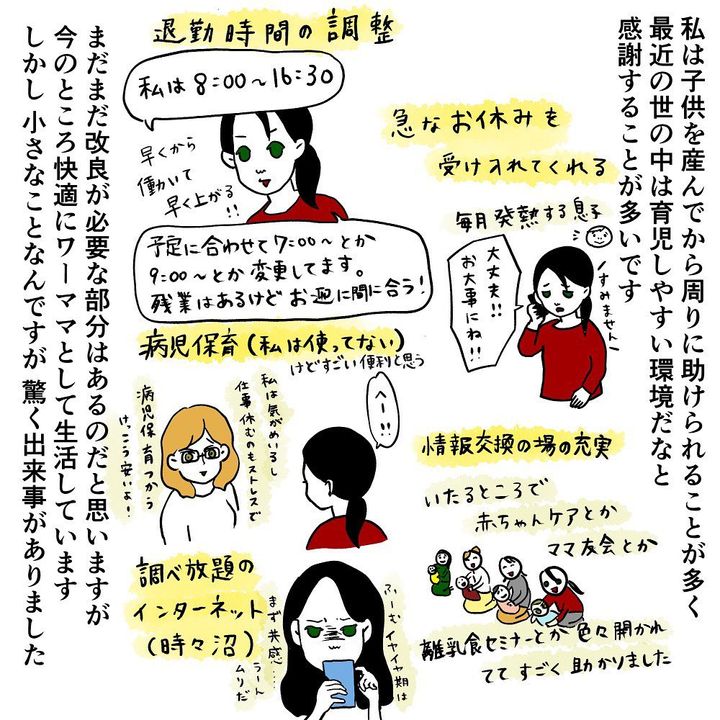 私は子供を産んでから周りに助けられることが多く
最近の世の中は育児しやすい環境だなと
感謝することが多いです
退勤時間の調整
私は8:00〜16:30
早くから
働いて
早く上がる!!
予定に合わせて7:00〜とか
9:00〜とか変更してます。
残業はあるけどお迎に間に合う!
急なお休みを
受け入れてくれる
毎月発熱する息子
すみません
大丈夫!!
お大事にね!!
病児保育(私は使ってない)
けどすごい便利と思う
私は気がめいるし
仕事休むのもストレスで
病児保育つかう
けっこう安いよ!
へー!!
情報交換の場の充実
いたるところで
赤ちゃんケアとか
ママ友会とか
離乳食セミナーとか色々開かれ
てて すごく助かりました
調べ放題の
インターネット
(時々沼)
ふーむ イヤイヤ期は
まず共感…
うーん
ムリだ
まだまだ改良が必要な部分はあるのだと思いますが
今のところ快適にワーママとして生活しています
しかし 小さなことなんですが 驚く出来事がありました